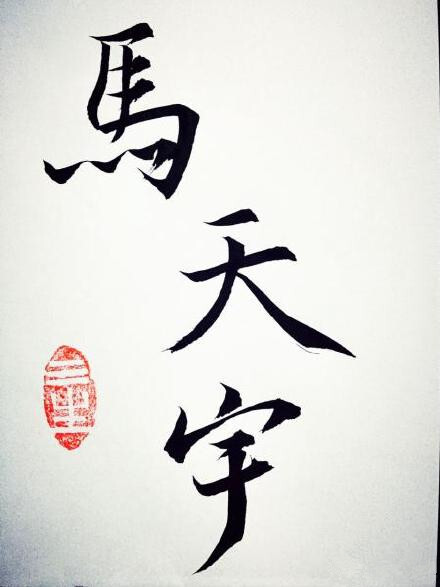 馬天宇